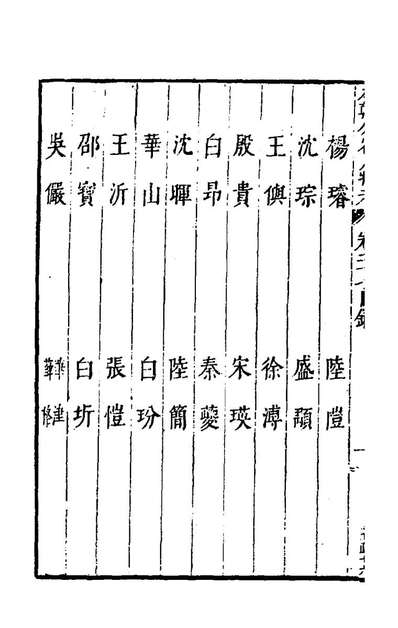 楊璿　陸愷
沈琮　盛顒
王㒜　徐溥
殷貴　宋瑛
白昂　秦夔
沈暉　陸簡
華山　白玢
王沂　張愷
邵寶　白圻
吳儼　華津　華格